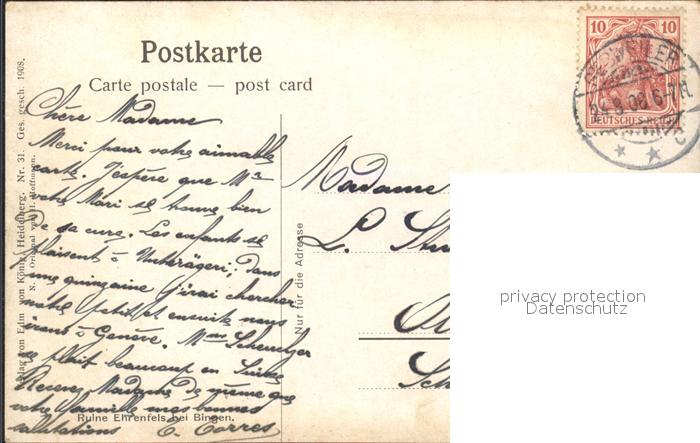 Postkarte
Carte postale — post card
Verlag von Edm. von König, Heidelberg. Nr. 31. Ges. gesch. 1908.
N. d. Original von H. Hoffmann.
10 10
DEUTSCHES REICH
24.8.08.6-7N.
Chère Madame
Merci pour votre aimable
carte. J'espère que Mr
votre Mari se trouve bien
de sa cure. Les enfants se
plaisent à Unterägeri; dans
une quinzaine j'irai chercher
notre petit et ensuite nous
irons à Genève. Mme
se plait beaucoup en Suisse
Recevez Madame de même que
votre famille mes bonnes
salutations C. Torres
Ruine Ehrenfels bei Bingen.
Nur für die Adresse
Madame
L.
privacy protection
Datenschutz